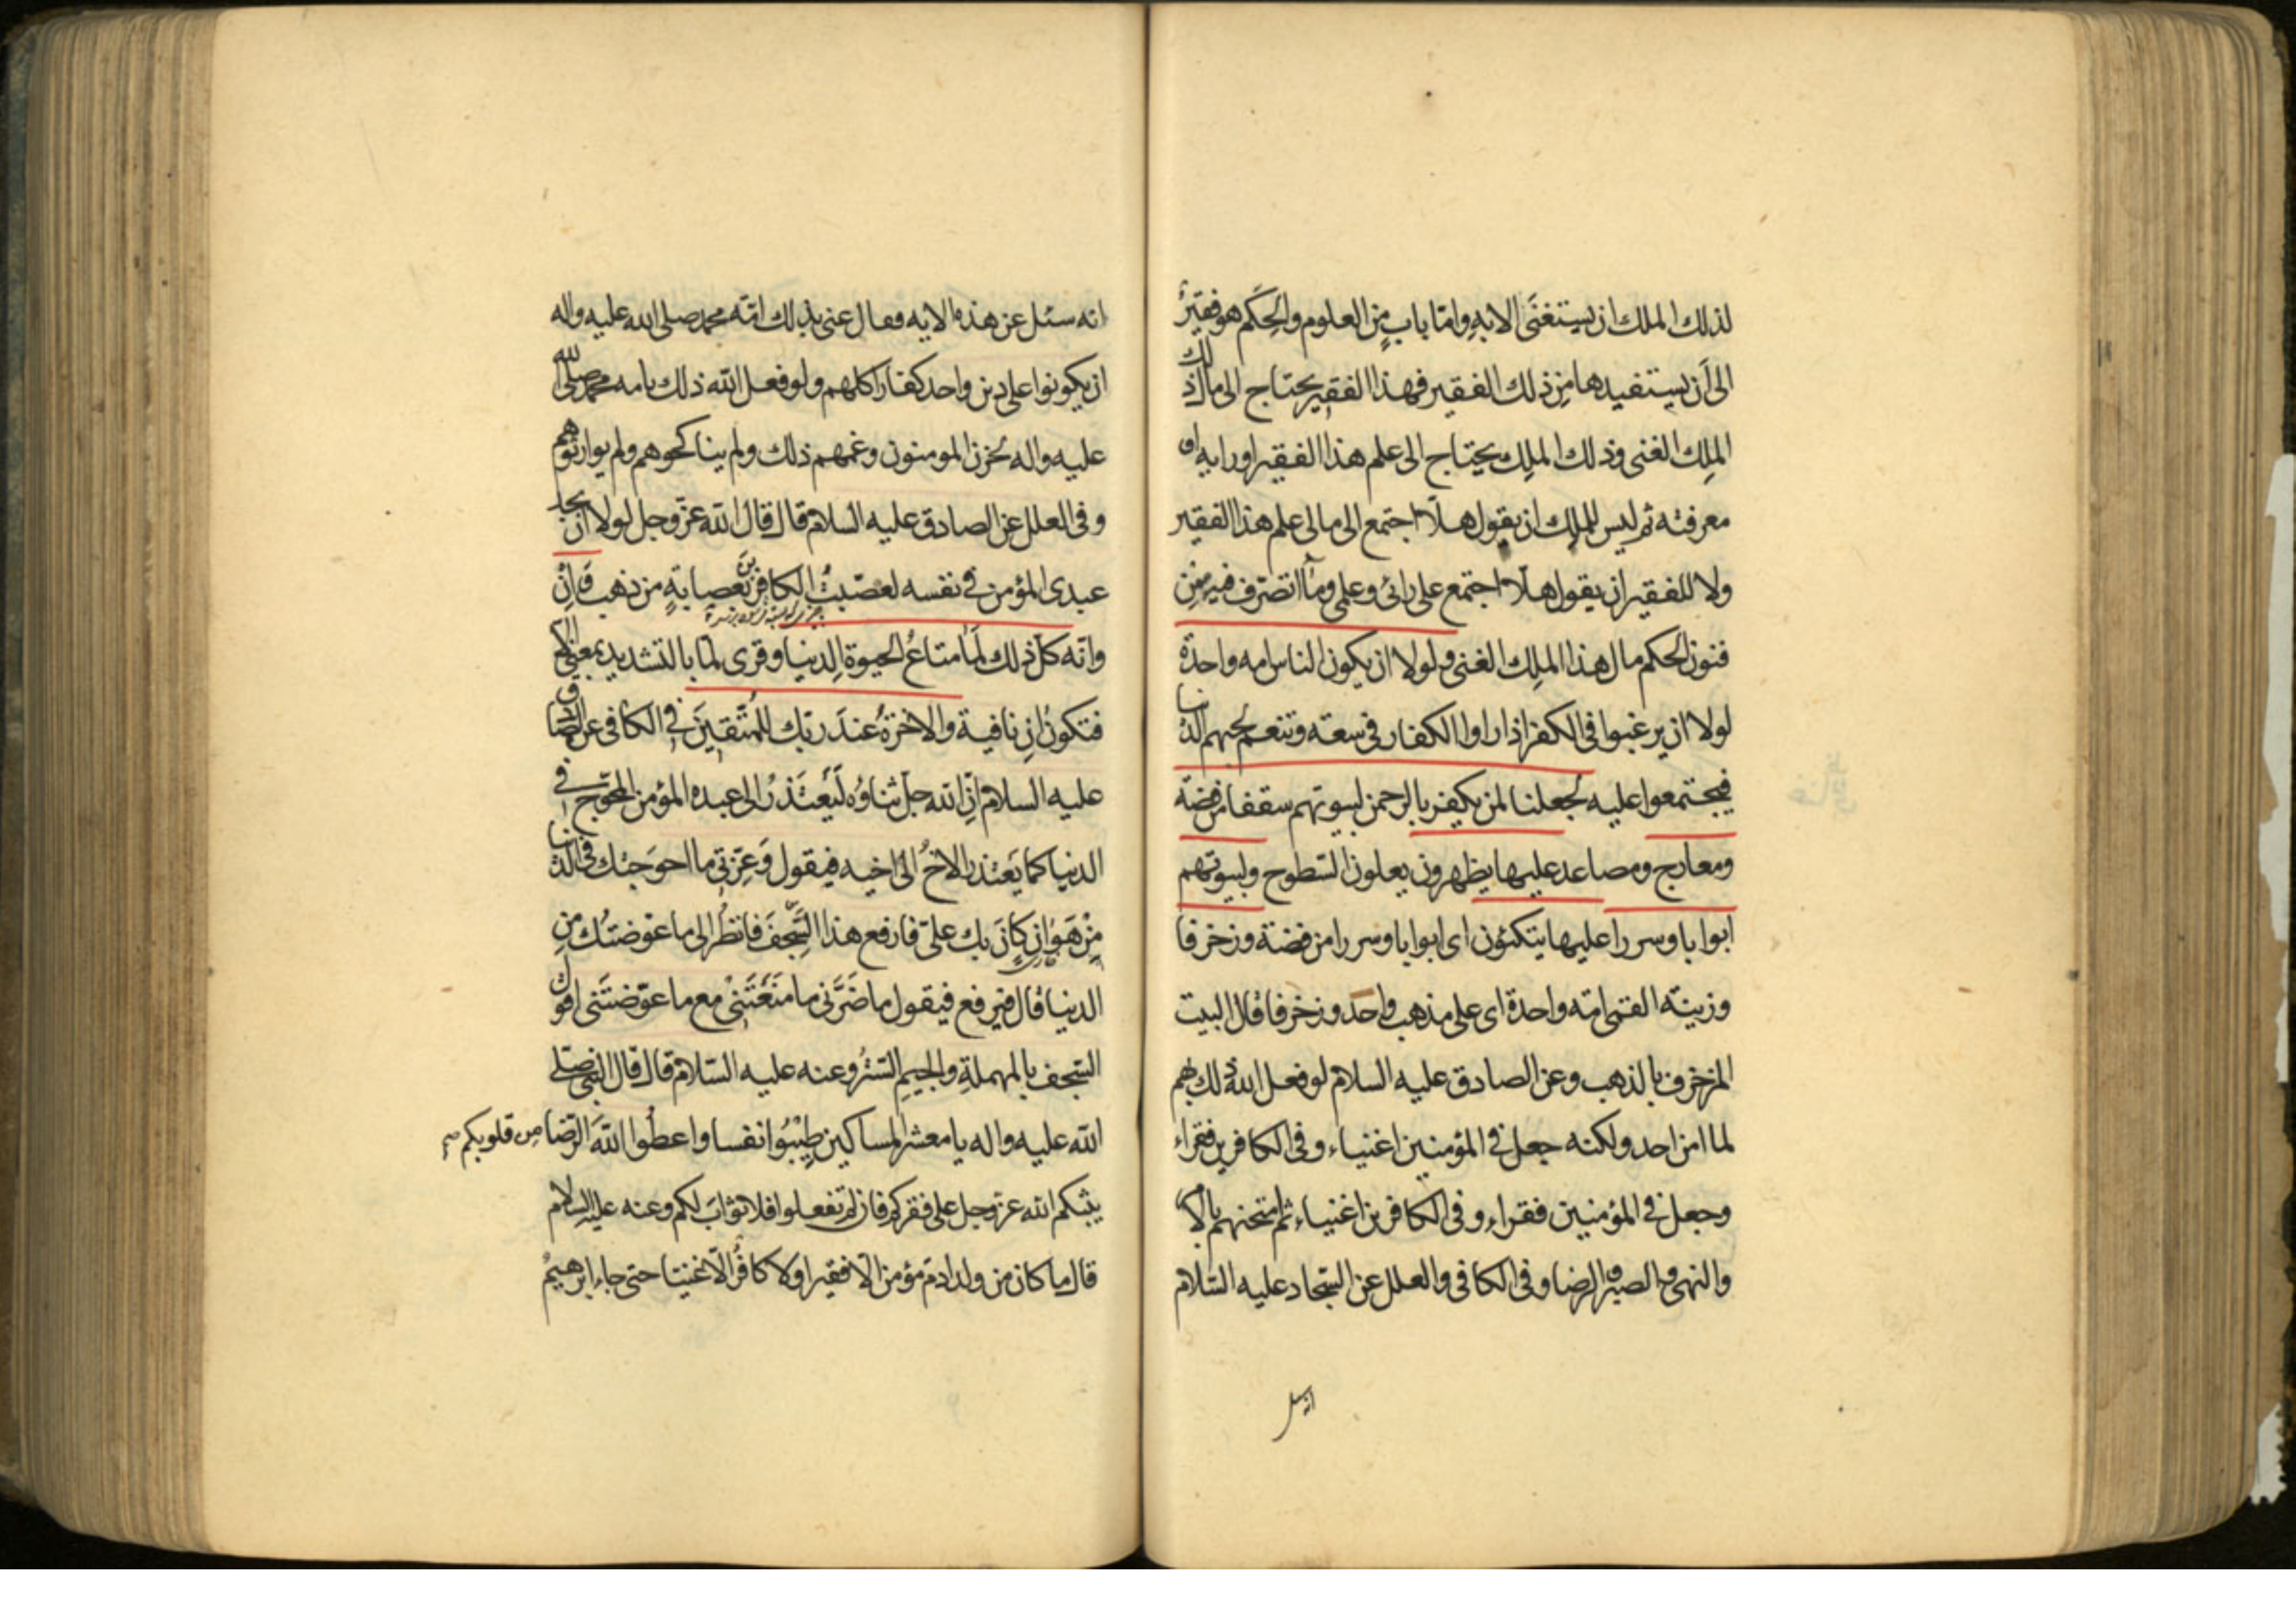 لذلك الملك ان يستغنى الا به واما باب من العلوم والحكم هو فقير
الى ان يستفيدها من ذلك الفقير فهذا الفقير يحتاج الى مال ذلك
الملك الغنى وذلك الملك يحتاج الى علم هذا الفقير او رايه او
معرفته ثم ليس للملك ان يقول هلا اجتمع الى مالى علم هذا الفقير
ولا للفقير ان يقول هلا اجتمع على رائى وعلمى وما اتصرف فيه من
فنون الحكم مال هذا الملك الغنى ولولا ان يكون الناس امه واحدة
لولا ان يرغبوا فى الكفر اذا راوا الكفار فى سعة وتنعم لحبهم الدنيا
فيجتمعوا عليه لجعلنا لمن يكفر بالرحمن لبيوتهم سقفا من فضة
ومعارج ومصاعد عليها يظهرون يعلون السطوح ولبيوتهم
ابوابا وسررا عليها يتكئون اى ابوابا وسررا من فضة وزخرفا
وزينة القمى امة واحدة اى على مذهب واحد وزخرفا قال البيت
المزخرف بالذهب وعن الصادق عليه السلام لو فعل الله ذلك بهم
لما امن احد ولكنه جعل فى المؤمنين اغنياء وفى الكافرين فقراء
وجعل فى المؤمنين فقراء وفى الكافرين اغنياء ثم امتحنهم بالامر
والنهى والصبر والرضا وفى الكافى والعلل عن السجاد عليه السلام
انه سئل
انه سئل عن هذه الايه فقال عنى بذلك امّة محمد صلى الله عليه واله
ان يكونوا على دين واحد كفارا كلهم ولو فعل الله ذلك بامه محمد صلى الله
عليه واله لحزن المومنون وغمهم ذلك ولم يناكحوهم ولم يوارثوهم
وفى العلل عن الصادق عليه السلام قال قال الله عز وجل لولا ان يجد
عبدى المؤمن فى نفسه لعصّبتُ الكافرين بعصابةٍ من ذهب وَاِنْ
وانه كل ذلك لَمَا متاعُ الحيوة الدنيا وقرى لمّا بالتشديد بمعنى الا
فتكون ان نافية والاخرةُ عندَ ربّك للمُتّقينَ فى الكافى عن الصادق
عليه السلام انّ الله جل ثناؤه لَيَعْتَذرُ الى عبده المؤمن المحوج فى
الدنيا كما يَعتذر الاخُ الى اخيه فيقول وَعِزّتى ما احوَجتك فى الدنيا
مِنْ هَوَانٍ كانَ بك علىّ فارفع هذا السَّجفَ فانظُر الى ما عوّضتُك من
الدنيا قال فيرفع فيقول ما ضَرّنى ما منَعْتَنى مع ما عوّضتَنى اقول
السّجف بالمهملةِ والجيمِ السّتر وعنه عليه السّلام قال قال النبى صلى
الله عليه واله يا معشر المساكين طِيْبُوا نفسا واعطُوا اللهَ الرّضا من قلوبكم صح
يثبكم الله عز وجل على فقركم فان لم تفعلوا فلا ثوابَ لكم وعنه عليه السلام
قال ما كان من ولد ادم مؤمن الا فقيرا ولا كافرٌ الّا غنيا حتى جاء ابرهيمُ